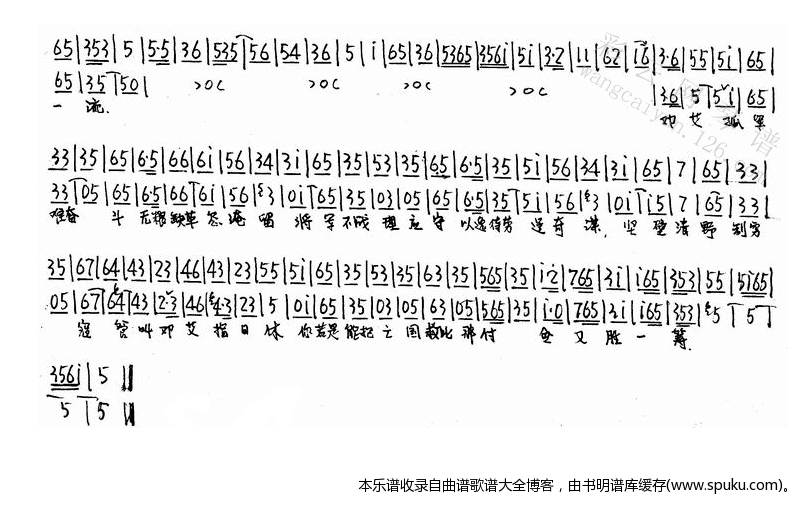 65|353|5|5·5|36|535|56|54|36|5|i|65|36|5365|356i|5i|3·2|11|62|16|3·6|55|5i|65|
65|35|50| >0< >0< >0< >0< |36|5|5i|65|
一 流. 邓 艾 孤 军
33|35|65|6·5|66|6i|56|34|3i|65|35|53|35|65|6·5|35|5i|56|34|3i|65|7|65|33|
33|05|65|6·5|66|6i|56|3|0i|65|35|03|05|65|6·5|35|5i|56|3|0i|i5|7|65|33|
难奋 斗 无粮 草 怎 淹 留 将 军 不战 理 应 守 以逸待劳 逞 奇 谋, 坚 壁 清 野 割 穷
35|67|64|43|23|46|43|23|55|5i|65|35|53|35|63|35|565|35|i·2|765|3i|i65|353|55|5i65|
05|67|64|43|23|46|43|23|5|0i|65|35|03|05|63|05|565|35|i·0|765|3i|i65|353|5|5|
寇 管 叫 邓 艾 指 日 休 你若是 能把 亡 国 救 比 那 付 金 又 胜 一 筹.
356i|5‖
5|5‖
本乐谱收录自曲谱歌谱大全博客，由书明谱库缓存(www.spuku.com)。